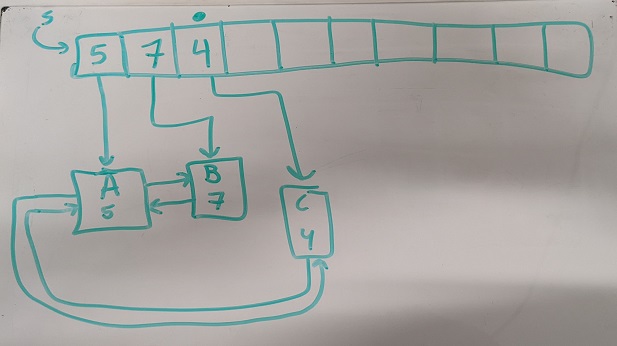 S
5 7 4
A
5
B
7
C
4